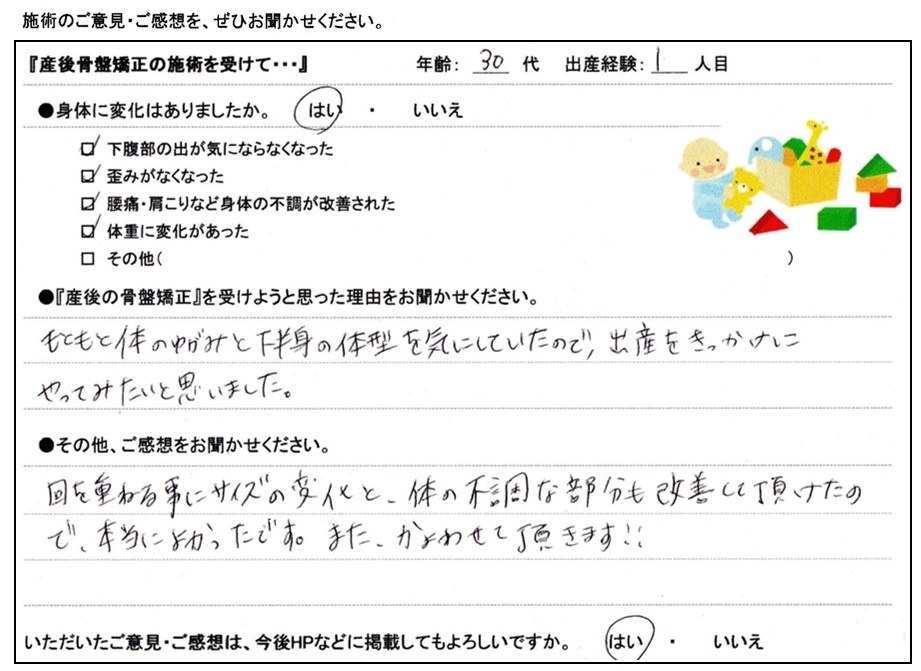 施術のご意見・ご感想を、ぜひお聞かせください。
『産後骨盤矯正の施術を受けて・・・』 年齢: 30 代 出産経験: 1 人目
●身体に変化はありましたか。 はい ・ いいえ
☑ 下腹部の出が気にならなくなった
☑ 歪みがなくなった
☑ 腰痛・肩こりなど身体の不調が改善された
☑ 体重に変化があった
□ その他( )
●『産後の骨盤矯正』を受けようと思った理由をお聞かせください。
もともと体のゆがみと下半身の体型を気にしていたので、出産をきっかけに
やってみたいと思いました。
●その他、ご感想をお聞かせください。
回を重ねる事にサイズの変化と、体の不調な部分も改善して頂けたの
で、本当によかったです。また、かよわせて頂きます!!
いただいたご意見・ご感想は、今後HPなどに掲載してもよろしいですか。 はい ・ いいえ